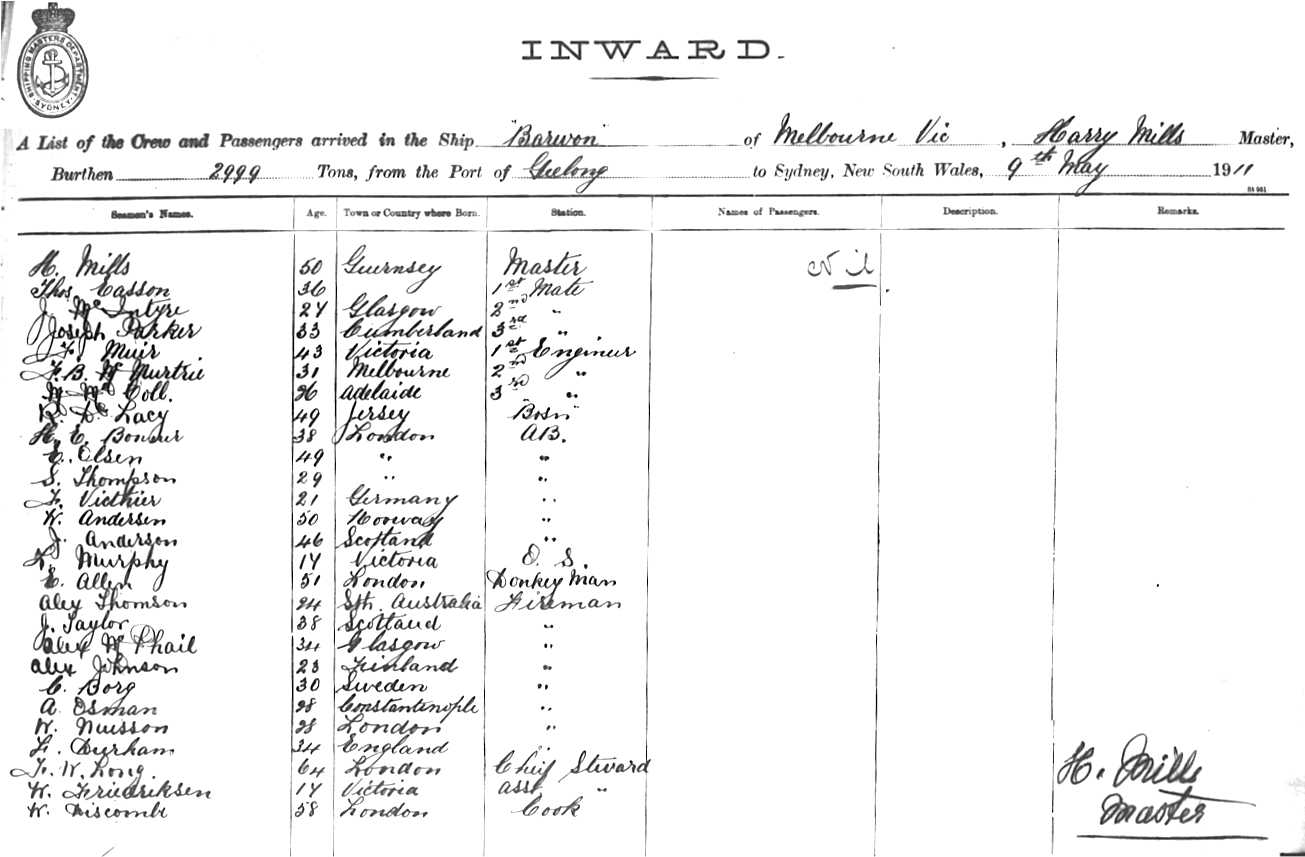 SHIPPING MASTERS DEPARTMENT
SYDNEY
INWARD.
A List of the Crew and Passengers arrived in the Ship "Barwon" of Melbourne Vic, Harry Mills Master,
Burthen 2999 Tons, from the Port of Geelong to Sydney, New South Wales, 9th May 1911
Seamen's Names. Age. Town or Country where Born. Station. Names of Passengers. Description. Remarks.
H. Mills 50 Guernsey Master Nil
Thos Easson 36 1st Mate
J. Mc Intyre 27 Glasgow 2nd "
Joseph Parker 33 Cumberland 3rd "
F. Muir 43 Victoria 1st Engineer
F. B. Mc Murtrie 31 Melbourne 2nd "
W. Mc Coll. 26 Adelaide 3rd "
R. De Lacy 49 Jersey "Bosn"
H. E. 38 London AB.
E. Olsen 49 " "
S. Thompson 29 " "
F. Victhier 21 Germany "
W. Andersen 50 Norway "
J. Anderson 46 Scotland "
L. Murphy 17 Victoria O. S.
E. Allen 51 London Donkey Man
Alex Thomson 24 Sth. Australia Fireman
J. Taylor 38 Scotland "
Alex Mc Phail 34 Glasgow "
Alex Johnson 23 Finland "
C. Borg 30 Sweden "
A. Osman 28 Constantinople "
W. 28 London "
F. Durham 34 England "
F. W. Long. 64 London Chief Steward
W. Friedriksen 17 Victoria asst. "
W. Liscomb 58 London Cook
H. Mills
Master